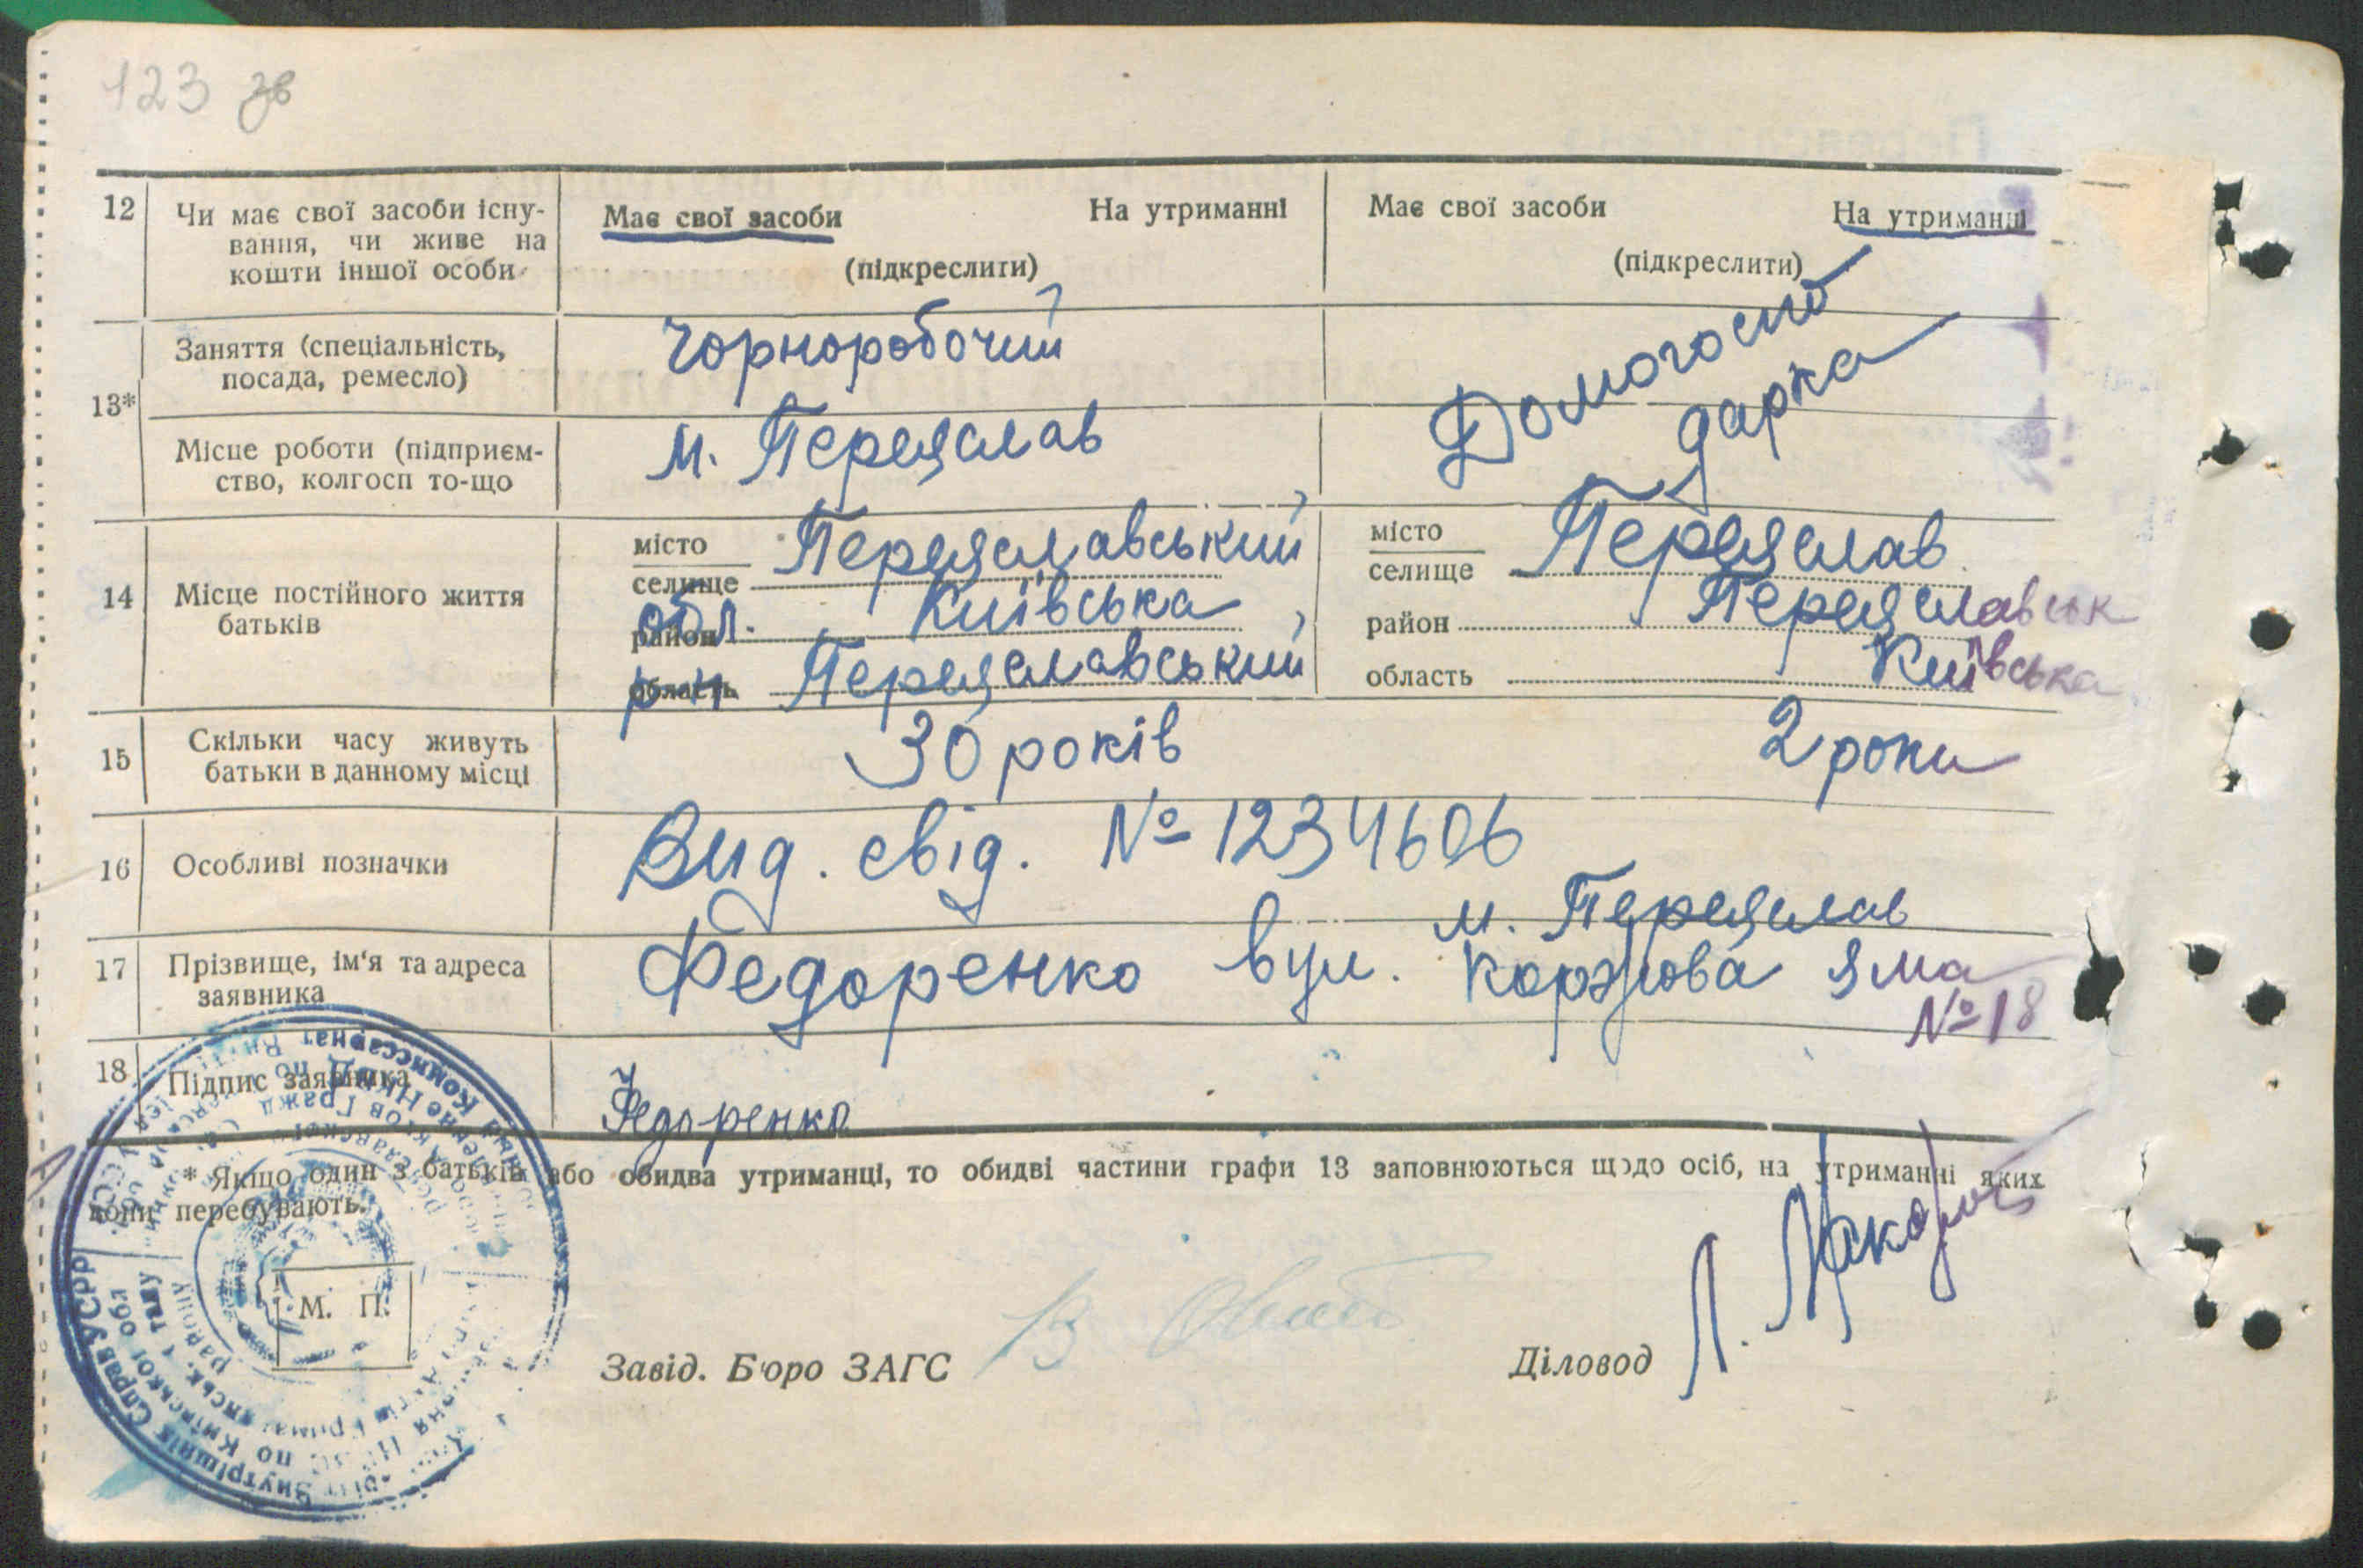 123 зв
12 Чи має свої засоби існу-
вання, чи живе на
кошти іншої особи
Має свої засоби На утриманні
(підкреслити)
Має свої засоби На утриманні
(підкреслити)
13*
Заняття (спеціальність,
посада, ремесло)
Чорноробочий
Домогоспо
дарка
Місце роботи (підприєм-
ство, колгосп то-що
м. Переяслав
14 Місце постійного життя
батьків
місто
селище Переяславський
район обл. Київська
область р-н Переяславський
місто
селище Переяслав
район Переяславськ
область Київська
15 Скільки часу живуть
батьки в данному місці
30 років
2 роки
16 Особливі позначки
Вид. свід. № 1234606
17 Прізвище, ім'я та адреса
заявника
м. Переяслав
Федоренко вул. яма
№ 18
18 Підпис заявника
Федоренко
* Якщо один з батьків або обидва утриманці, то обидві частини графи 13 заповнюються щодо осіб, на утриманні яких
вони перебувають.
М. П.
Завід. Бюро ЗАГС
Діловод Л.
Внутрішніх Справ УСРР
по Київської обл
району
Комиссариат